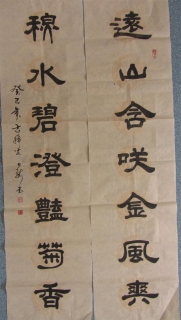 遠山含咲金風爽
穆水碧澄豔菊香
癸巳年